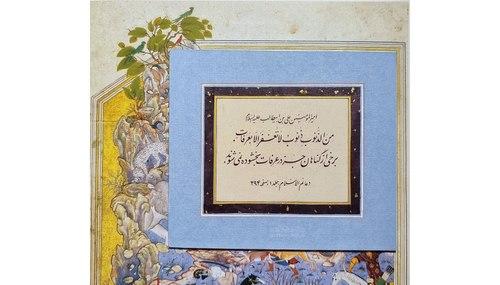 امیرالمؤمنین علی بن ابیطالب علیه‌السلام
من الذنوب ذنوب لا تغفر الا بعرفات.
برخی از گناهان جز در عرفات بخشوده نمی‌شود.
دعائم الاسلام، جلد ۱، صفحه ۲۹۴